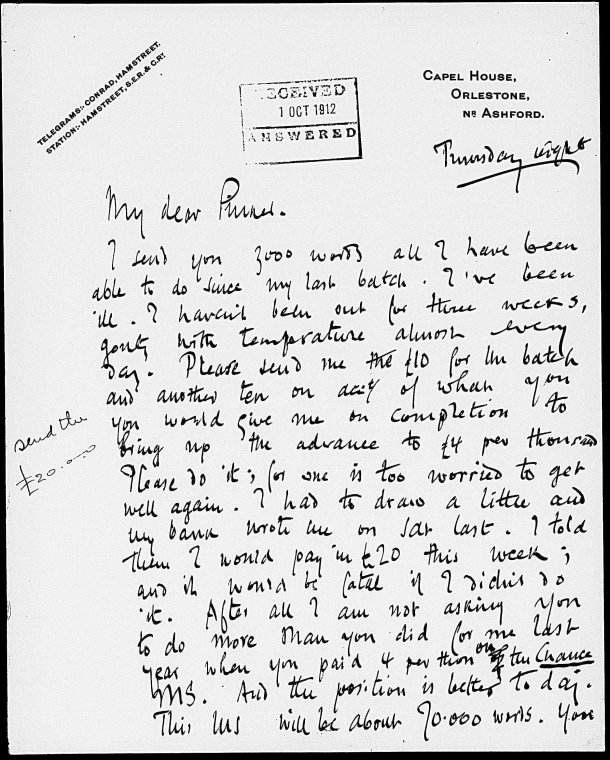 TELEGRAMS:- CONRAD, HAMSTREET.
STATION:- HAMSTREET, S.E.R. & C.Rʸ.
RECEIVED
1 OCT 1912
ANSWERED
CAPEL HOUSE,
ORLESTONE,
Nʀ ASHFORD.
Thursday night
My dear Pinker.
I send you 3000 words all I have been
able to do since my last batch. I've been
ill. I haven't been out for three weeks,
gouty with temperature almost every
day. Please send me the £10 for the batch
and another ten on acct of what you
you would give me on completion to
bring up the advance to £4 per thousand
Please do it; for one is too worried to get
well again. I had to draw a little and
my bank wrote me on Sat last. I told
them I would pay in £20 this week;
and it would be fatal if I didn't do
it. After all I am not asking you
to do more than you did for me last
year when you paid 4 per thou on the Chance
MS. And the position is better to day.
This MS will be about 70.000 words. You
send the
£20.0.0